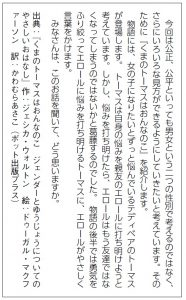 今回は公正、公平といっても男女という二つの性別で考えるのではなく、
さらにいろいろな見方ができるようにしていきたいと考えています。その
ために「くまのトーマスはおんなのこ」を紹介します。
物語には、女の子になりたいとずっと悩んでいるテディベアのトーマス
が登場します。トーマスは自身の悩みを親友のエロールに打ち明けようと
考えています。しかし、悩みを打ち明けたら、エロールはもう友達ではな
くなってしまうのではないかと葛藤するのでした。物語の後半では勇気を
ふり絞ってエロールに悩みを打ち明けるトーマスに、エロールがやさしく
言葉をかけます。
みなさんは、このお話を聞いて、どう思いますか。
出典：『くまのトーマスはおんなのこ　ジェンダーとゆうじょうについての
やさしいおはなし』作：ジェシカ・ウォルトン　絵：ドゥーガル・マクフ
ァーソン　訳：かわむらあさこ（ポット出版プラス）